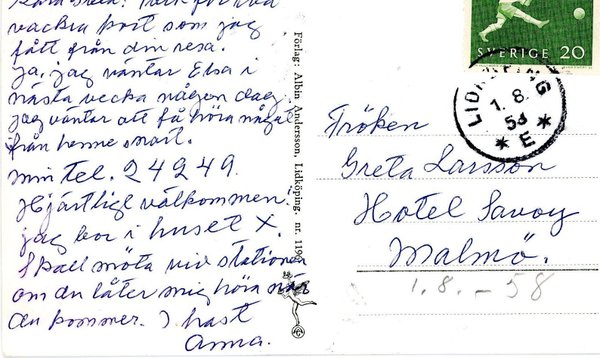 Kära Greta! Tack för två
vackra kort som jag
fått från din resa.
Ja, jag väntar Elsa i
nästa vecka någon dag,
jag väntar att få höra något
från henne snart.
min tel. 24249.
Hjärtligt välkommen!
jag bor i huset X.
Skall möta vid stationen
om du låter mig höra när
du kommer. I hast
Anna.
Förlag: Albin Andersson, Lidköping. nr. 119
SVERIGE 20
LIDKÖPING
1.8.
58
* E *
Fröken
Greta Larsson
Hotel Savoy
Malmö.
1.8.-58